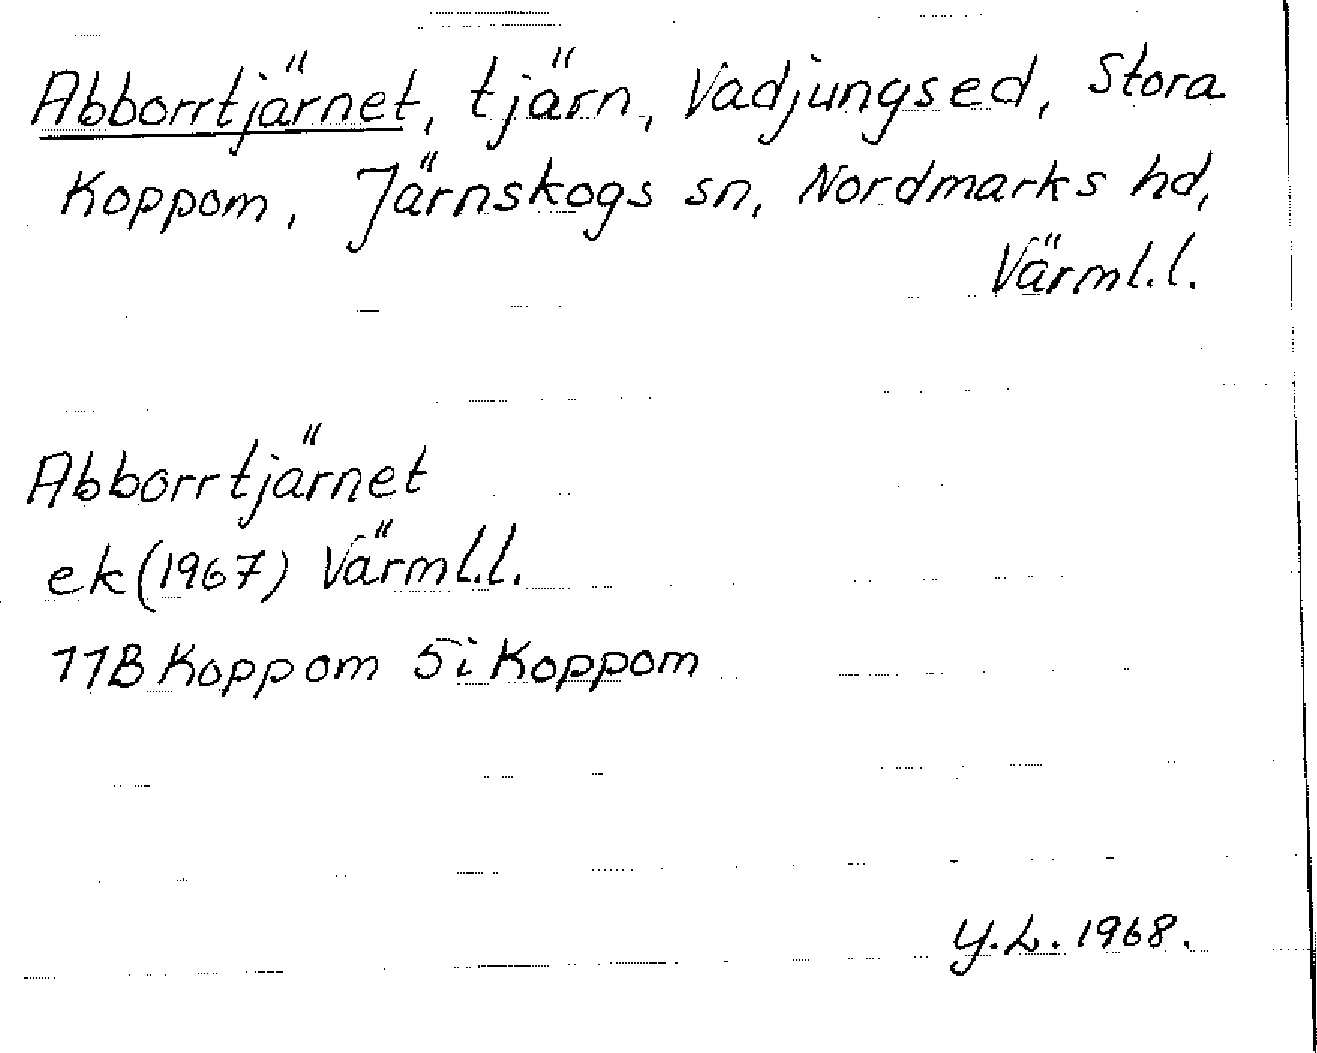 Abborrtjärnet, tjärn, Vadjungsed, Stora
Koppom, Järnskogs sn, Nordmarks hd,
Värml.l.
Abborrtjärnet
ek (1967) Värml.l.
11B Koppom 5i Koppom
Y.L. 1968.